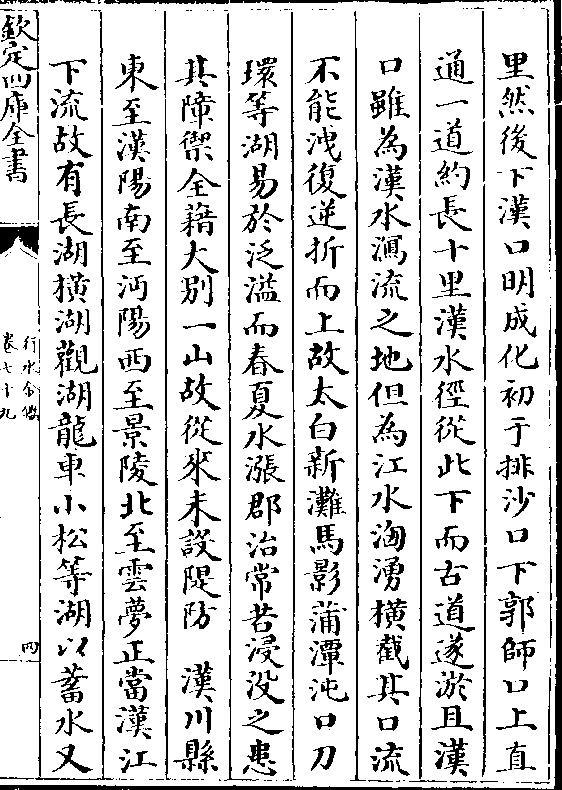 里然後下漢口明成化初于排沙口下郭師口上直
通一道約長十里漢水徑從此下而古道遂淤且漢
口雖為漢水瀉流之地但為江水洶湧橫截其口流
不能洩復逆折而上故太白新灘馬影蒲潭沌口刀
環等湖易於泛溢而春夏水漲郡治常苦浸没之患
其障禦全藉大别一山故從來未設隄防　漢川縣
東至漢陽南至沔陽西至景陵北至雲夢正當漢江
下流故有長湖橫湖觀湖龍車小松等湖以蓄水又
欽定四庫全書
行水金鑑
卷七十九
四